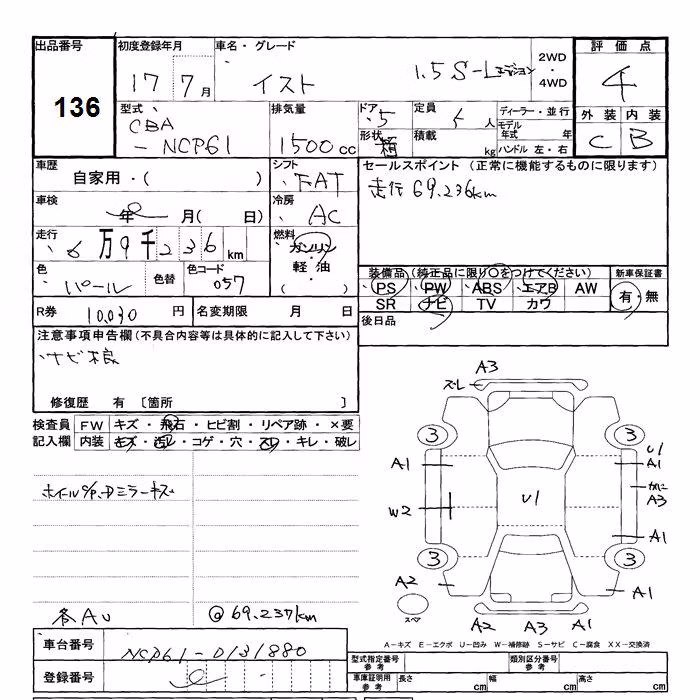 出品番号
136
初度登録年月
17 7月
車名・グレード
イスト 1.5 S-Lエディション
2WD
・
4WD
評価点
4
外装 内装
C B
型式
CBA
- NCP61
排気量
1500 cc
ドア
5
形状
箱
定員
5 人
積載
kg
ディーラー・並行
モデル
年式 年
ハンドル 左・右
車歴
自家用・( )
シフト
FAT
車検
年 月( 日)
冷房
AC
走行
6万9千236km
燃料
ガソリン
軽油
( ・ )
色
パール
色替
色コード
057
R券 10,030 円
名変期限 月 日
セールスポイント (正常に機能するものに限ります)
走行69.236km
装備品(純正品に限り○をつけてください)
PS PW ABS エアB AW
SR ナビ TV カワ
新車保証書
有・無
後日品
注意事項申告欄(不具合内容等は具体的に記入して下さい)
ナビ不良
修復歴 有 〔箇所 〕
検査員
記入欄
FW キズ・飛石・ヒビ割・リペア跡・×要
内装 キズ・汚レ・コゲ・穴・スレ・キレ・破レ
ホイルC/P、Dミラーキズ
各AU
@69.237km
A3
ズレ
3 3
A1
U1
A1
かに
A3
W2
U1
A1
3 3
A2
A1
スペア
A2 A3 A1
A-キズ E-エクボ U-凹み W-補修跡 S-サビ C-腐食 XX-交換済
車台番号
NCP61-0131880
登録番号
型式指定番号
参考
類別区分番号
参考
車庫証明用
参考
長さ cm
幅 cm
高さ cm